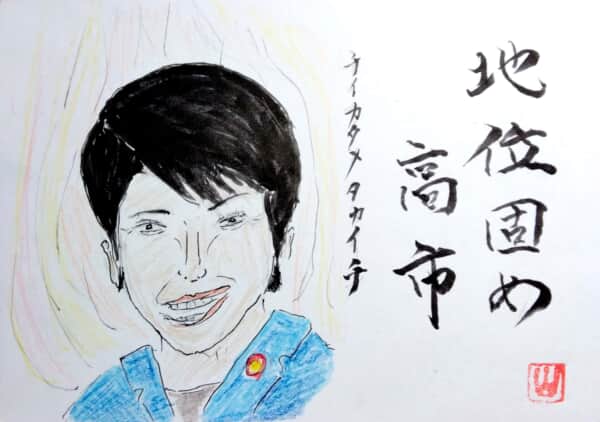 地位固め
高市
チイカタメタカイチ
山